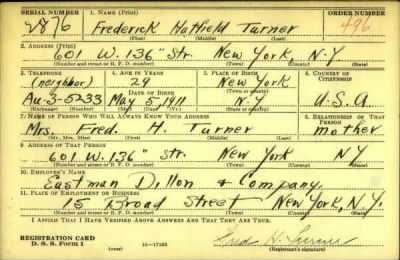 SERIAL NUMBER 1. NAME (Print) ORDER NUMBER
2876 Frederick Hatfield Turner 496
(First) (Middle) (Last)
2. ADDRESS (Print)
601 W. 136" Str. New York N.Y
(Number and street or R. F. D. number) (Town) (County) (State)
3. TELEPHONE 4. AGE IN YEARS 5. PLACE OF BIRTH 6. COUNTRY OF CITIZENSHIP
(neighbor) 29 New York
DATE OF BIRTH (Town or county)
Au-3-5233 May 5 1911 N.Y. U.S.A
(Exchange) (Number) (Mo.) (Day) (Yr.) (State or country)
7. NAME OF PERSON WHO WILL ALWAYS KNOW YOUR ADDRESS 8. RELATIONSHIP OF THAT PERSON
Mrs. Fred. H. Turner mother
(Mr., Mrs., Miss) (First) (Middle) (Last)
9. ADDRESS OF THAT PERSON
601 W. 136" Str. New York NY
(Number and street or R. F. D. number) (Town) (County) (State)
10. EMPLOYER'S NAME
Eastman Dillon & Company
11. PLACE OF EMPLOYMENT OR BUSINESS
15 Broad Street New York, N.Y.
(Number and street or R. F. D. number) (Town) (County) (State)
I AFFIRM THAT I HAVE VERIFIED ABOVE ANSWERS AND THAT THEY ARE TRUE.
REGISTRATION CARD
D. S. S. Form 1 (over) 16-17105 Fred H. Turner
(Registrant's signature)